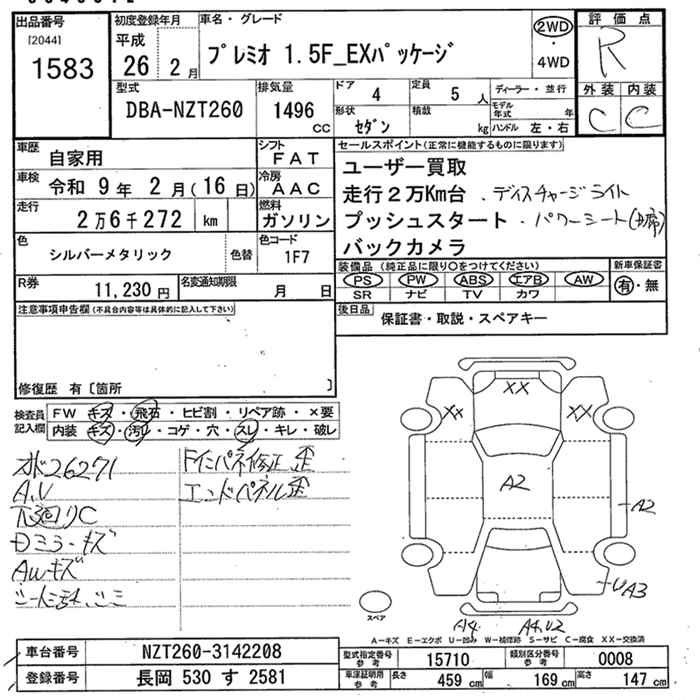 出品番号
[2044]
1583
初度登録年月
平成
26 年 2 月
車名・グレード
プレミオ 1.5F_EXパッケージ
2WD
・
4WD
評価点
R
外装 内装
C C
型式
DBA-NZT260
排気量
1496
CC
ドア 4
定員 5 人
形状 セダン
積載 kg
ディーラー・並行
モデル年式 年
ハンドル 左・右
車歴 自家用
シフト FAT
車検 令和 9 年 2 月 (16 日)
冷房 AAC
走行 2万6千272 km
燃料 ガソリン
色 シルバーメタリック
色替
色コード 1F7
R券 11,230 円
名変通知期限 月 日
セールスポイント(正常に機能するものに限ります)
ユーザー買取
走行2万Km台 ・ディスチャージライト
プッシュスタート ・パワーシート
バックカメラ
装備品 (純正品に限り○をつけてください)
PS PW ABS エアB AW
SR ナビ TV カワ
新車保証書
有・無
後日品 保証書・取説・スペアキー
注意事項申告欄(不具合内容等は具体的に記入して下さい)
修復歴 有〔箇所 〕
検査員記入欄
FW キズ・飛石・ヒビ割・リペア跡・×要
内装 キズ・汚れ・コゲ・穴・スレ・キレ・破レ
オド26271
A,U
下廻りC
Dミラーキズ
AWキズ
Fインパネ修正、歪
エンドパネル歪
XX
XX
XX
A2
A2
UA3
A4
A4,U2
スペア
A−キズ E−エクボ U−凹み W−補修跡 S−サビ C−腐食 XX−交換済
車台番号 NZT260-3142208
登録番号 長岡 530 す 2581
型式指定番号 参考 15710
類別区分番号 参考 0008
車庫証明用 参考 長さ 459 cm 幅 169 cm 高さ 147 cm